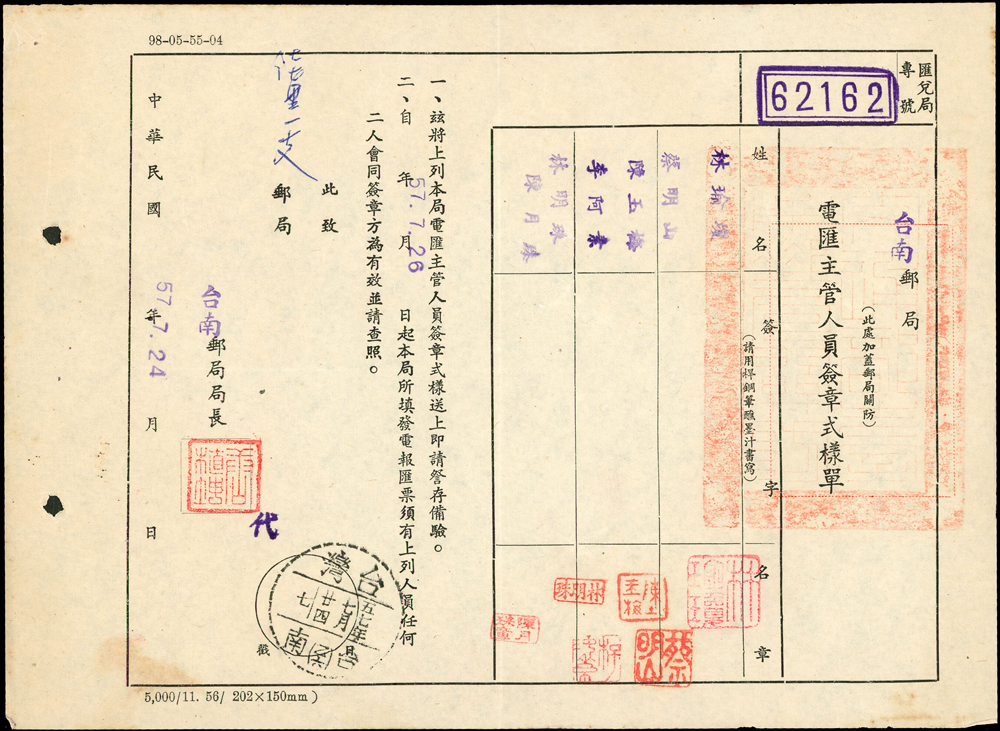 98-05-55-04
匯兌局
專號
62162
台南郵局
(此處加蓋郵局關防)
電匯主管人員簽章式樣單
姓名
簽字
(請用桿鋼筆醮墨汁書寫)
名章
林瑜瓊
蔡明山
陳玉梅
李阿素
林明珠
陳月珠
一、茲將上列本局電匯主管人員簽章式樣送上即請詧存備驗。
二、自 年 月 日起本局所填發電報匯票須有上列人員任何
57.7.26
二人會同簽章方為有效並請查照。
此致
郵局
台南郵局局長
代
中華民國 年 月 日
57.7.24
台灣
五七年
七月
廿四
七
台南
戳
林明珠
陳玉梅
陳月珠章
蔡明山
5,000/11. 56/ 202×150mm)